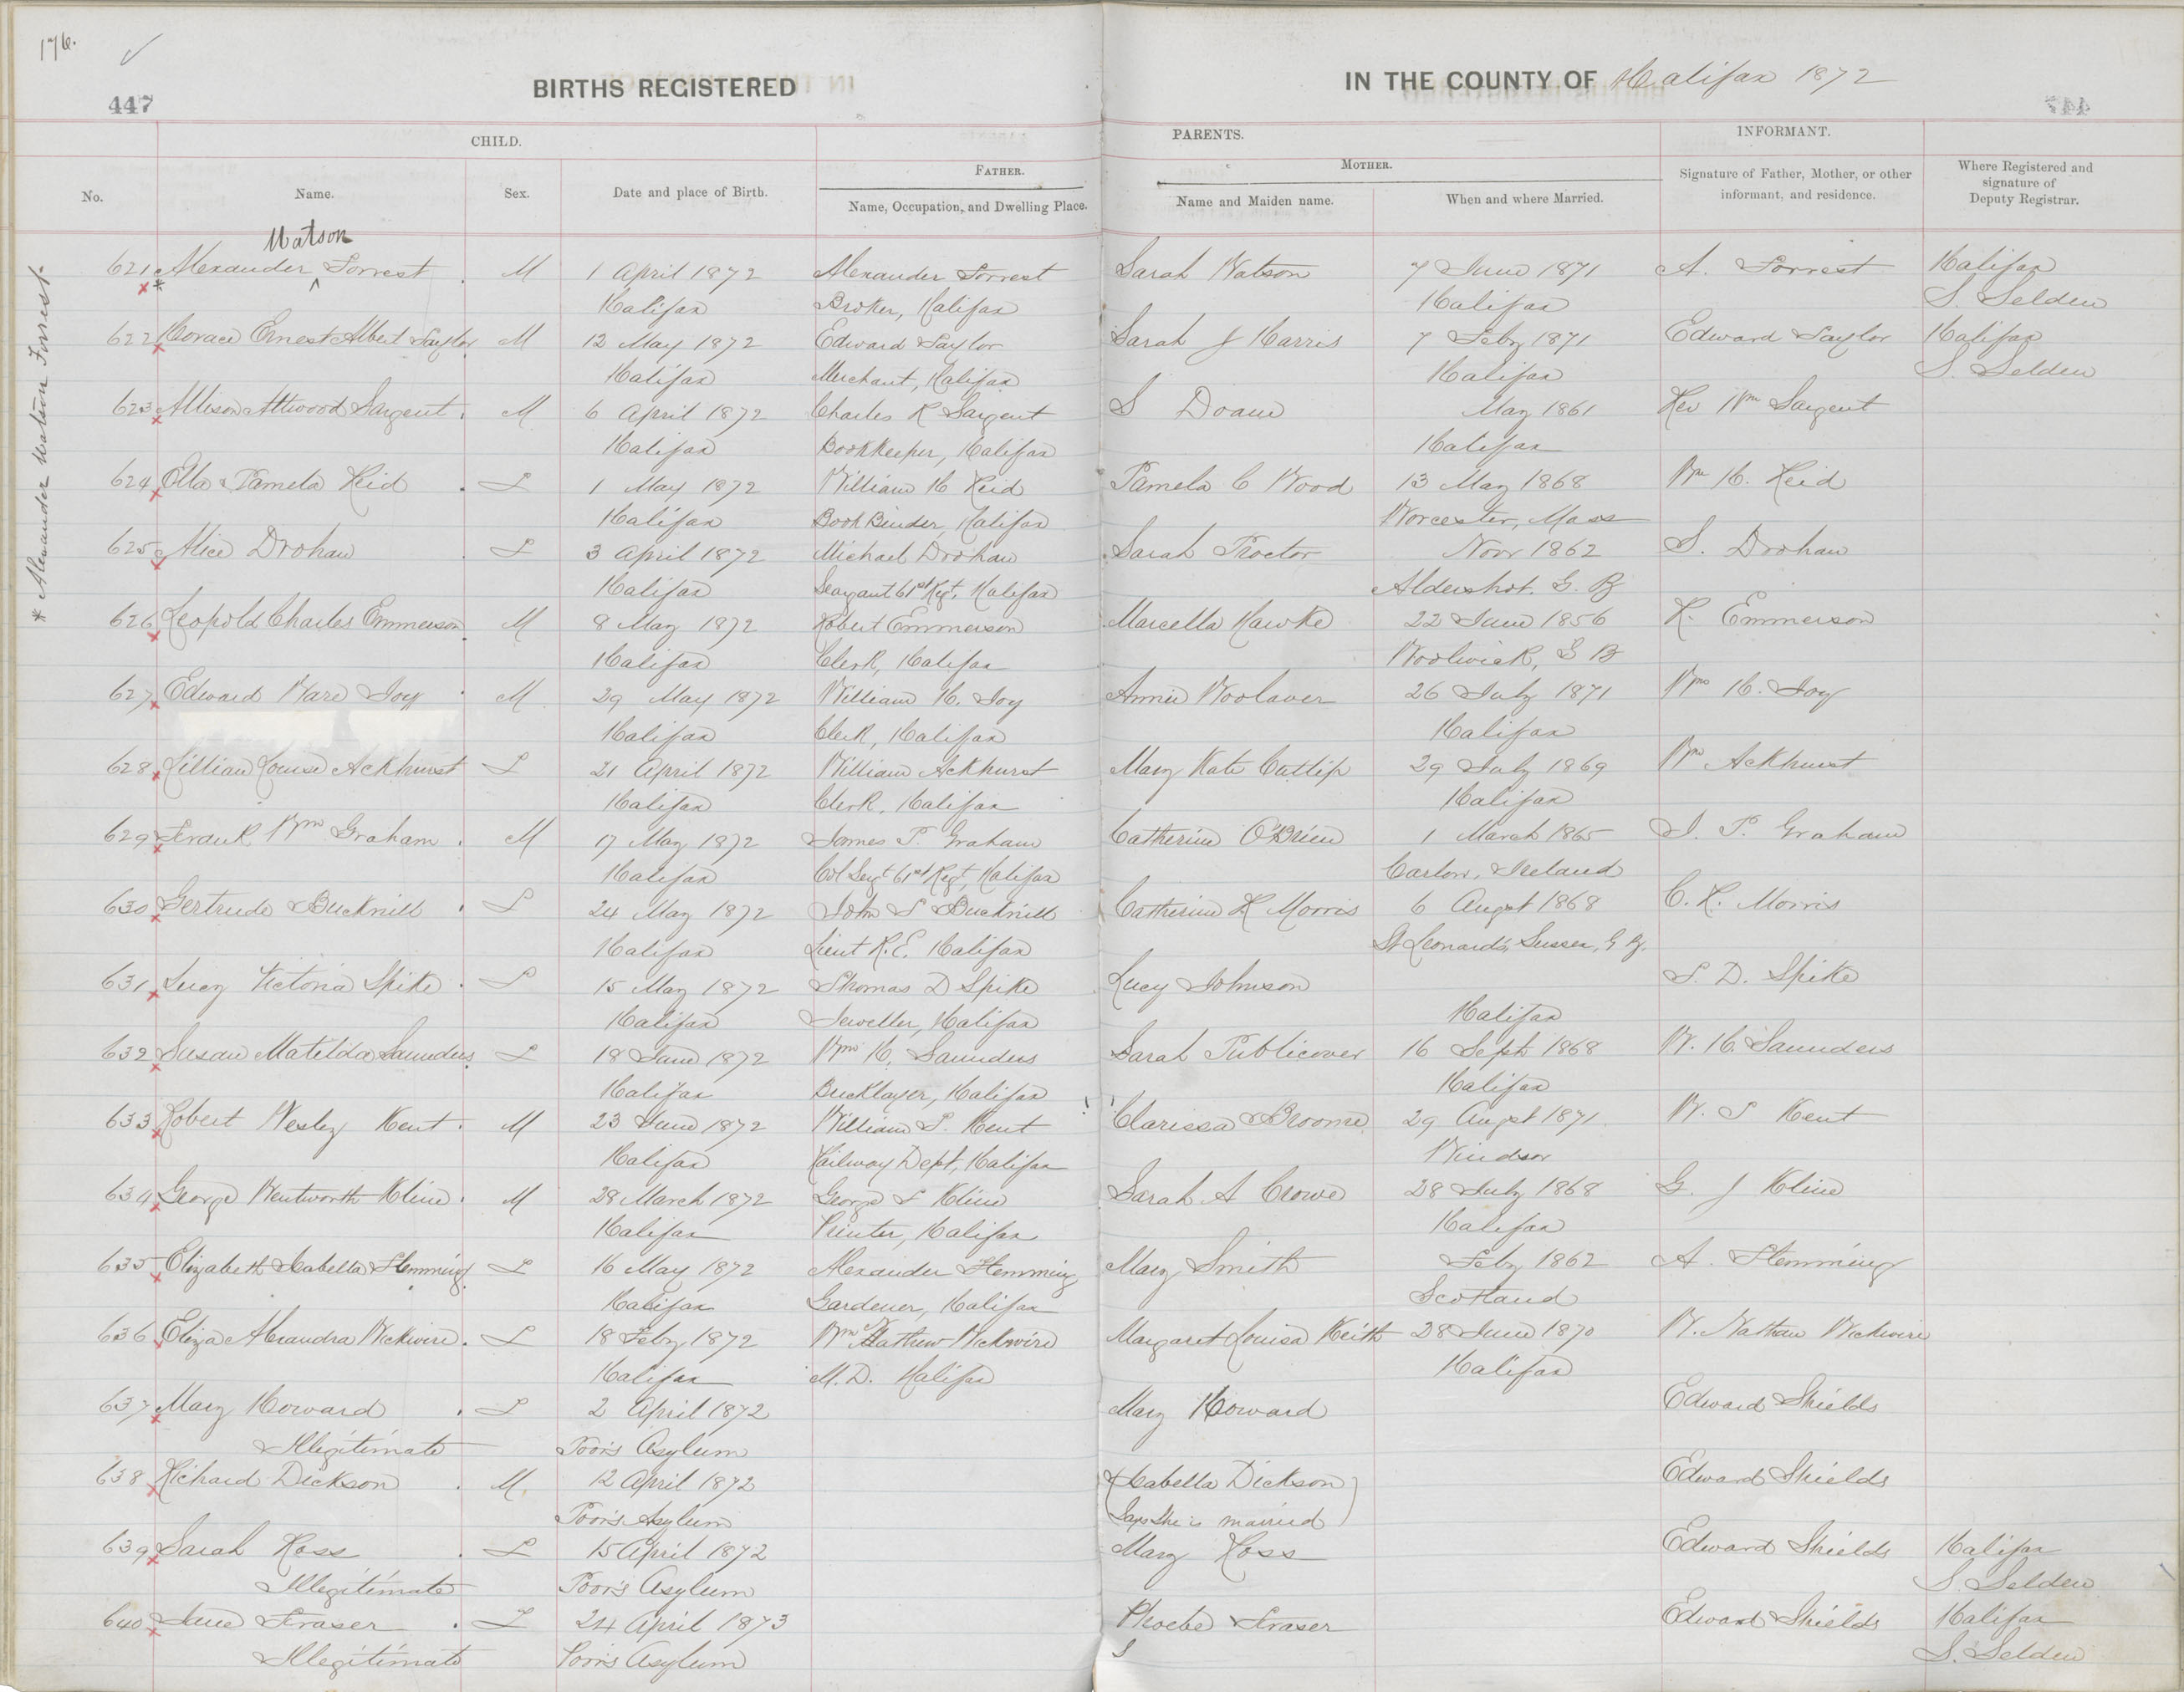 176.
447
BIRTHS REGISTERED IN THE COUNTY OF Halifax 1872
CHILD. PARENTS. INFORMANT.
FATHER. MOTHER.
No. Name. Sex. Date and place of Birth. Name, Occupation, and Dwelling Place. Name and Maiden name. When and where Married. Signature of Father, Mother, or other informant, and residence. Where Registered and signature of Deputy Registrar.
Watson
621 * Alexander ^ Forrest M 1 April 1872 Alexander Forrest Sarah Watson 7 June 1871 A. Forrest Halifax
Halifax Broker, Halifax Halifax S. Selden
622 Horace Ernest Albert Saylor M 12 May 1872 Edward Saylor Sarah J Harris 7 Feby 1871 Edward Saylor Halifax
Halifax Merchant, Halifax Halifax S. Selden
623 Allison Attwood Sargent M 6 April 1872 Charles R Sargent S Doane May 1861 Rev Wm Sargent
Halifax Bookkeeper, Halifax Halifax
624 Ella Pamela Reid F 1 May 1872 William H Reid Pamela C Wood 13 May 1868 Wm H. Reid
Halifax Book Binder, Halifax Worcester, Mass
625 Alice Drohan F 3 April 1872 Michael Drohan Sarah Proctor Novr 1862 S. Drohan
Halifax Seargant 61st Regt, Halifax Aldershot. G. B
626 Leopold Charles Emmerson M 8 May 1872 Robert Emmerson Marcella Hawke 22 June 1856 R. Emmerson
Halifax Clerk, Halifax Woolwick, G B
627 Edward Ware Joy M 29 May 1872 William H. Joy Annie Woolaver 26 July 1871 Wm H. Joy
Halifax Clerk, Halifax Halifax
628 Lillian Louise Ackhurst F 21 April 1872 William Ackhurst Mary Kate Cutlip 29 July 1869 Wm Ackhurst
Halifax Clerk, Halifax Halifax
629 Frank Wm Graham M 17 May 1872 James P. Graham Catherine O'Brien 1 March 1865 J. P. Graham
Halifax Col Sergt 61st Regt, Halifax Carlow, Ireland
630 Gertrude Bucknill F 24 May 1872 John S Bucknill Catherine R Morris 6 August 1868 C. R. Morris
Halifax Lieut R.E. Halifax St Leonards, Sussex, G B.
631 Lucy Victoria Spike F 15 May 1872 Thomas D Spike Lucy Johnson T. D. Spike
Halifax Jeweller, Halifax Halifax
632 Susan Matilda Saunders F 18 June 1872 Wm H. Saunders Sarah Publicover 16 Sept 1868 W. H. Saunders
Halifax Bricklayer, Halifax Halifax
633 Robert Wesley Kent M 23 June 1872 William S. Kent Clarissa Broome 29 Augst 1871 W. S Kent
Halifax Railway Dept, Halifax Windsor
634 George Wentworth Kline M 28 March 1872 George J Kline Sarah A Crowe 28 July 1868 G. J Kline
Halifax Printer, Halifax Halifax
635 Elizabeth Isabella Flemming F 16 May 1872 Alexander Flemming Mary Smith Feby 1862 A. Flemming
Halifax Gardener, Halifax Scotland
636 Eliza Alexandra Wickwire F 18 Feby 1872 Wm Nathan Wickwire Margaret Louisa Keith 28 June 1870 W. Nathan Wickwire
Halifax M.D. Halifax Halifax
637 Mary Howard F 2 April 1872 Mary Howard Edward Shields
Illegitimate Poor's Asylum
638 Richard Dickson M 12 April 1872 (Isabella Dickson Edward Shields
Poor's Asylum Says She is married)
639 Sarah Ross F 15 April 1872 Mary Ross Edward Shields Halifax
Illegitimate Poor's Asylum S. Selden
640 Jane Fraser F 24 April 1873 Phoebe Fraser Edward Shields Halifax
Illegitimate Poor's Asylum S. Selden
* Alexander Watson Forrest.